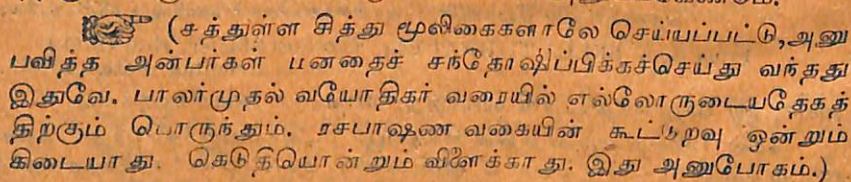 (சத்துள்ள சித்து மூலிகைகளாலே செய்யப்பட்டு,அனு
பவித்த அன்பர்கள் மனதைச் சந்தோஷிப்பிக்கச்செய்து வந்தது
இதுவே. பாலர்முதல் வயோதிகர் வரையில் எல்லோருடையதேகத்
திற்கும் பொருந்தும். ரசபாஷண வகையின் கூட்டுறவு ஒன்றும்
கிடையாது. கெடுதியொன்றும் விளைக்காது. இது அனுபோகம்.)